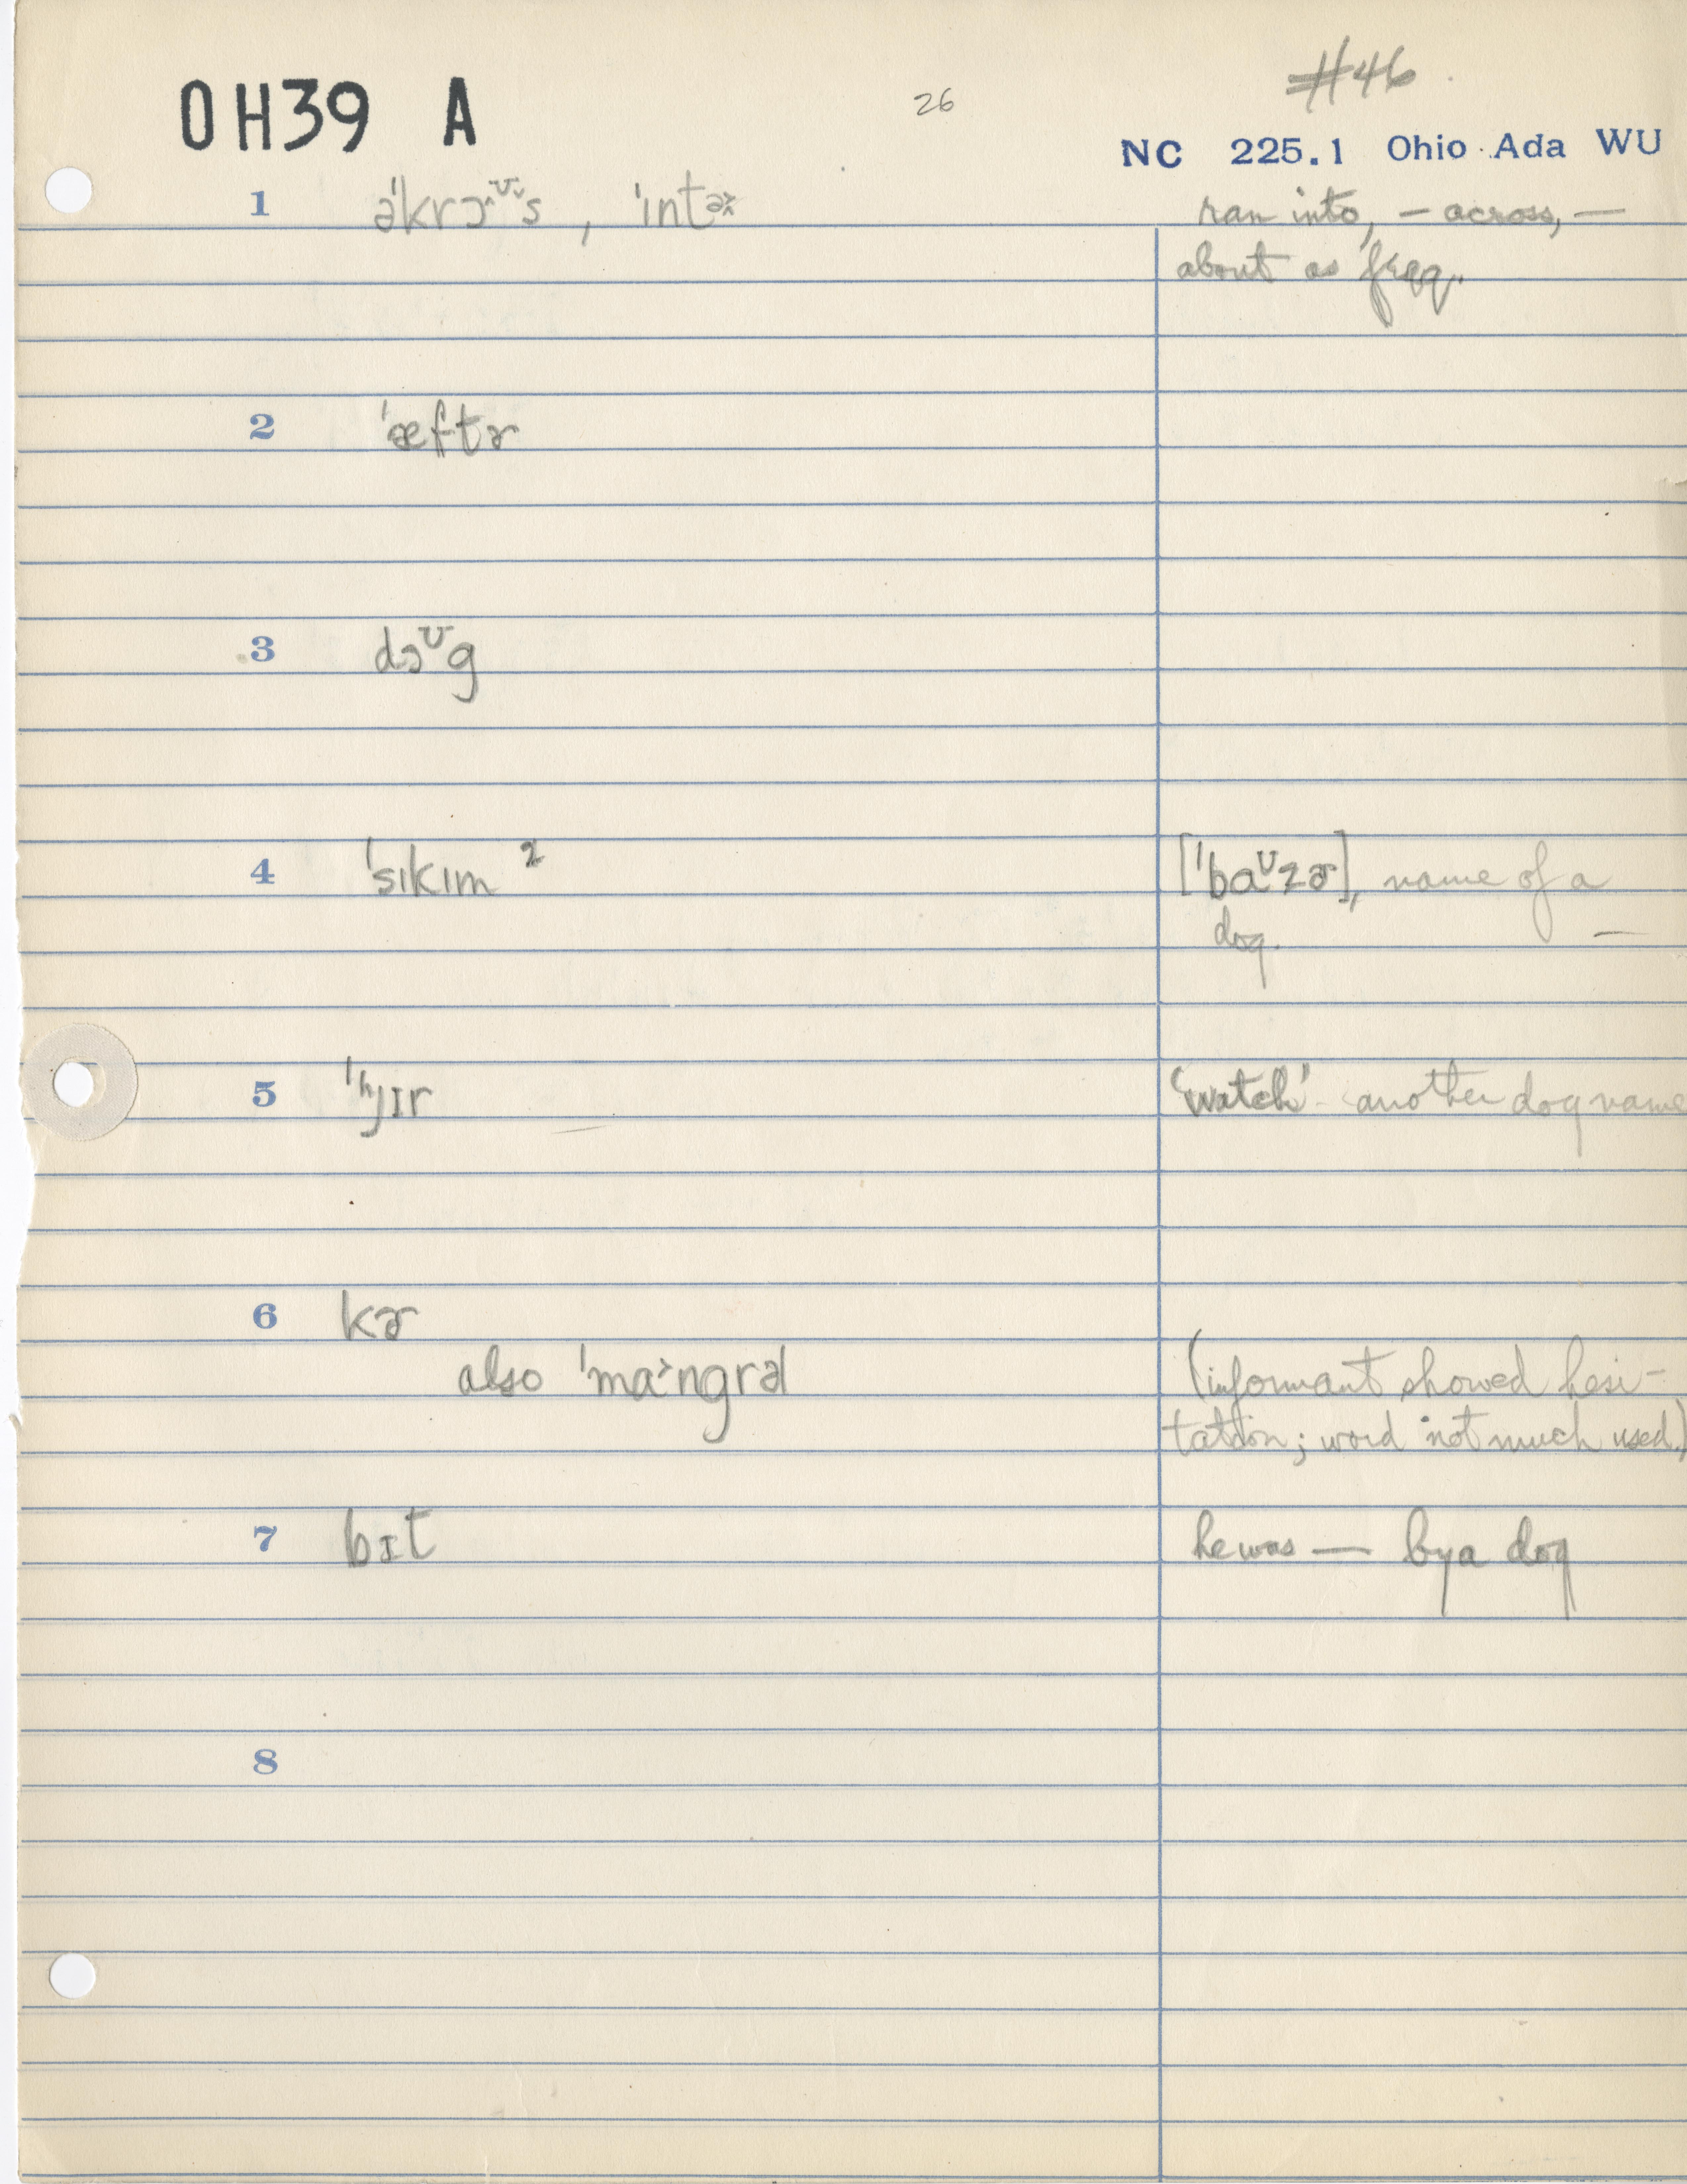 OH39 A
26
#46
NC 225.1 Ohio Ada WU
1 əˈkrɔ^ᴜ̆ˇs, ˈɪntə
ran into, — across, —
about as freq.
2 ˈæftɚ
3 dɔᶷg
4 ˈsɪkɪm ²
[ˈbaᶷzɚ], name of a
dog. —
5 ˈʰjɪr
'watch' - another dog name
6 kɚ
also ˈma˃ngrəl
(informant showed hesi-
tation; word not much used.)
7 bɪt
he was — by a dog
8